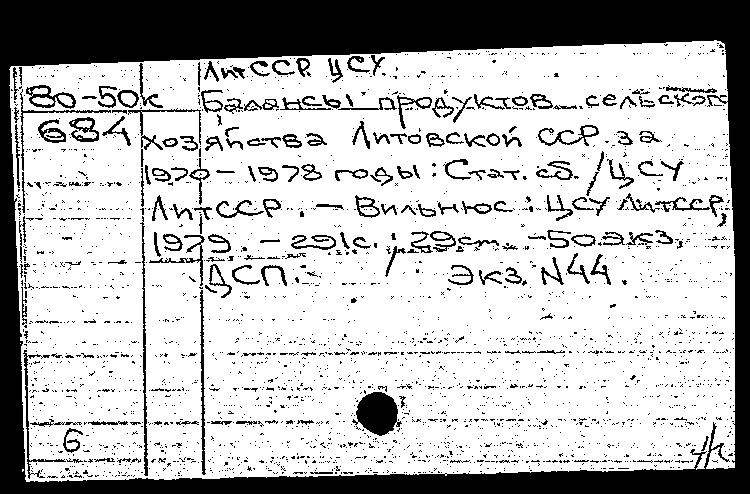 ЛитССР ЦСУ.
80-50к Балансы продуктов сельского
684 хозяйства Литовской ССР за
1970-1978 годы : Стат. сб. / ЦСУ
ЛитССР. - Вильнюс : ЦСУ ЛитССР,
1979. - 291с. ; 29см. -50экз.
ДСП. Экз. N44.
6